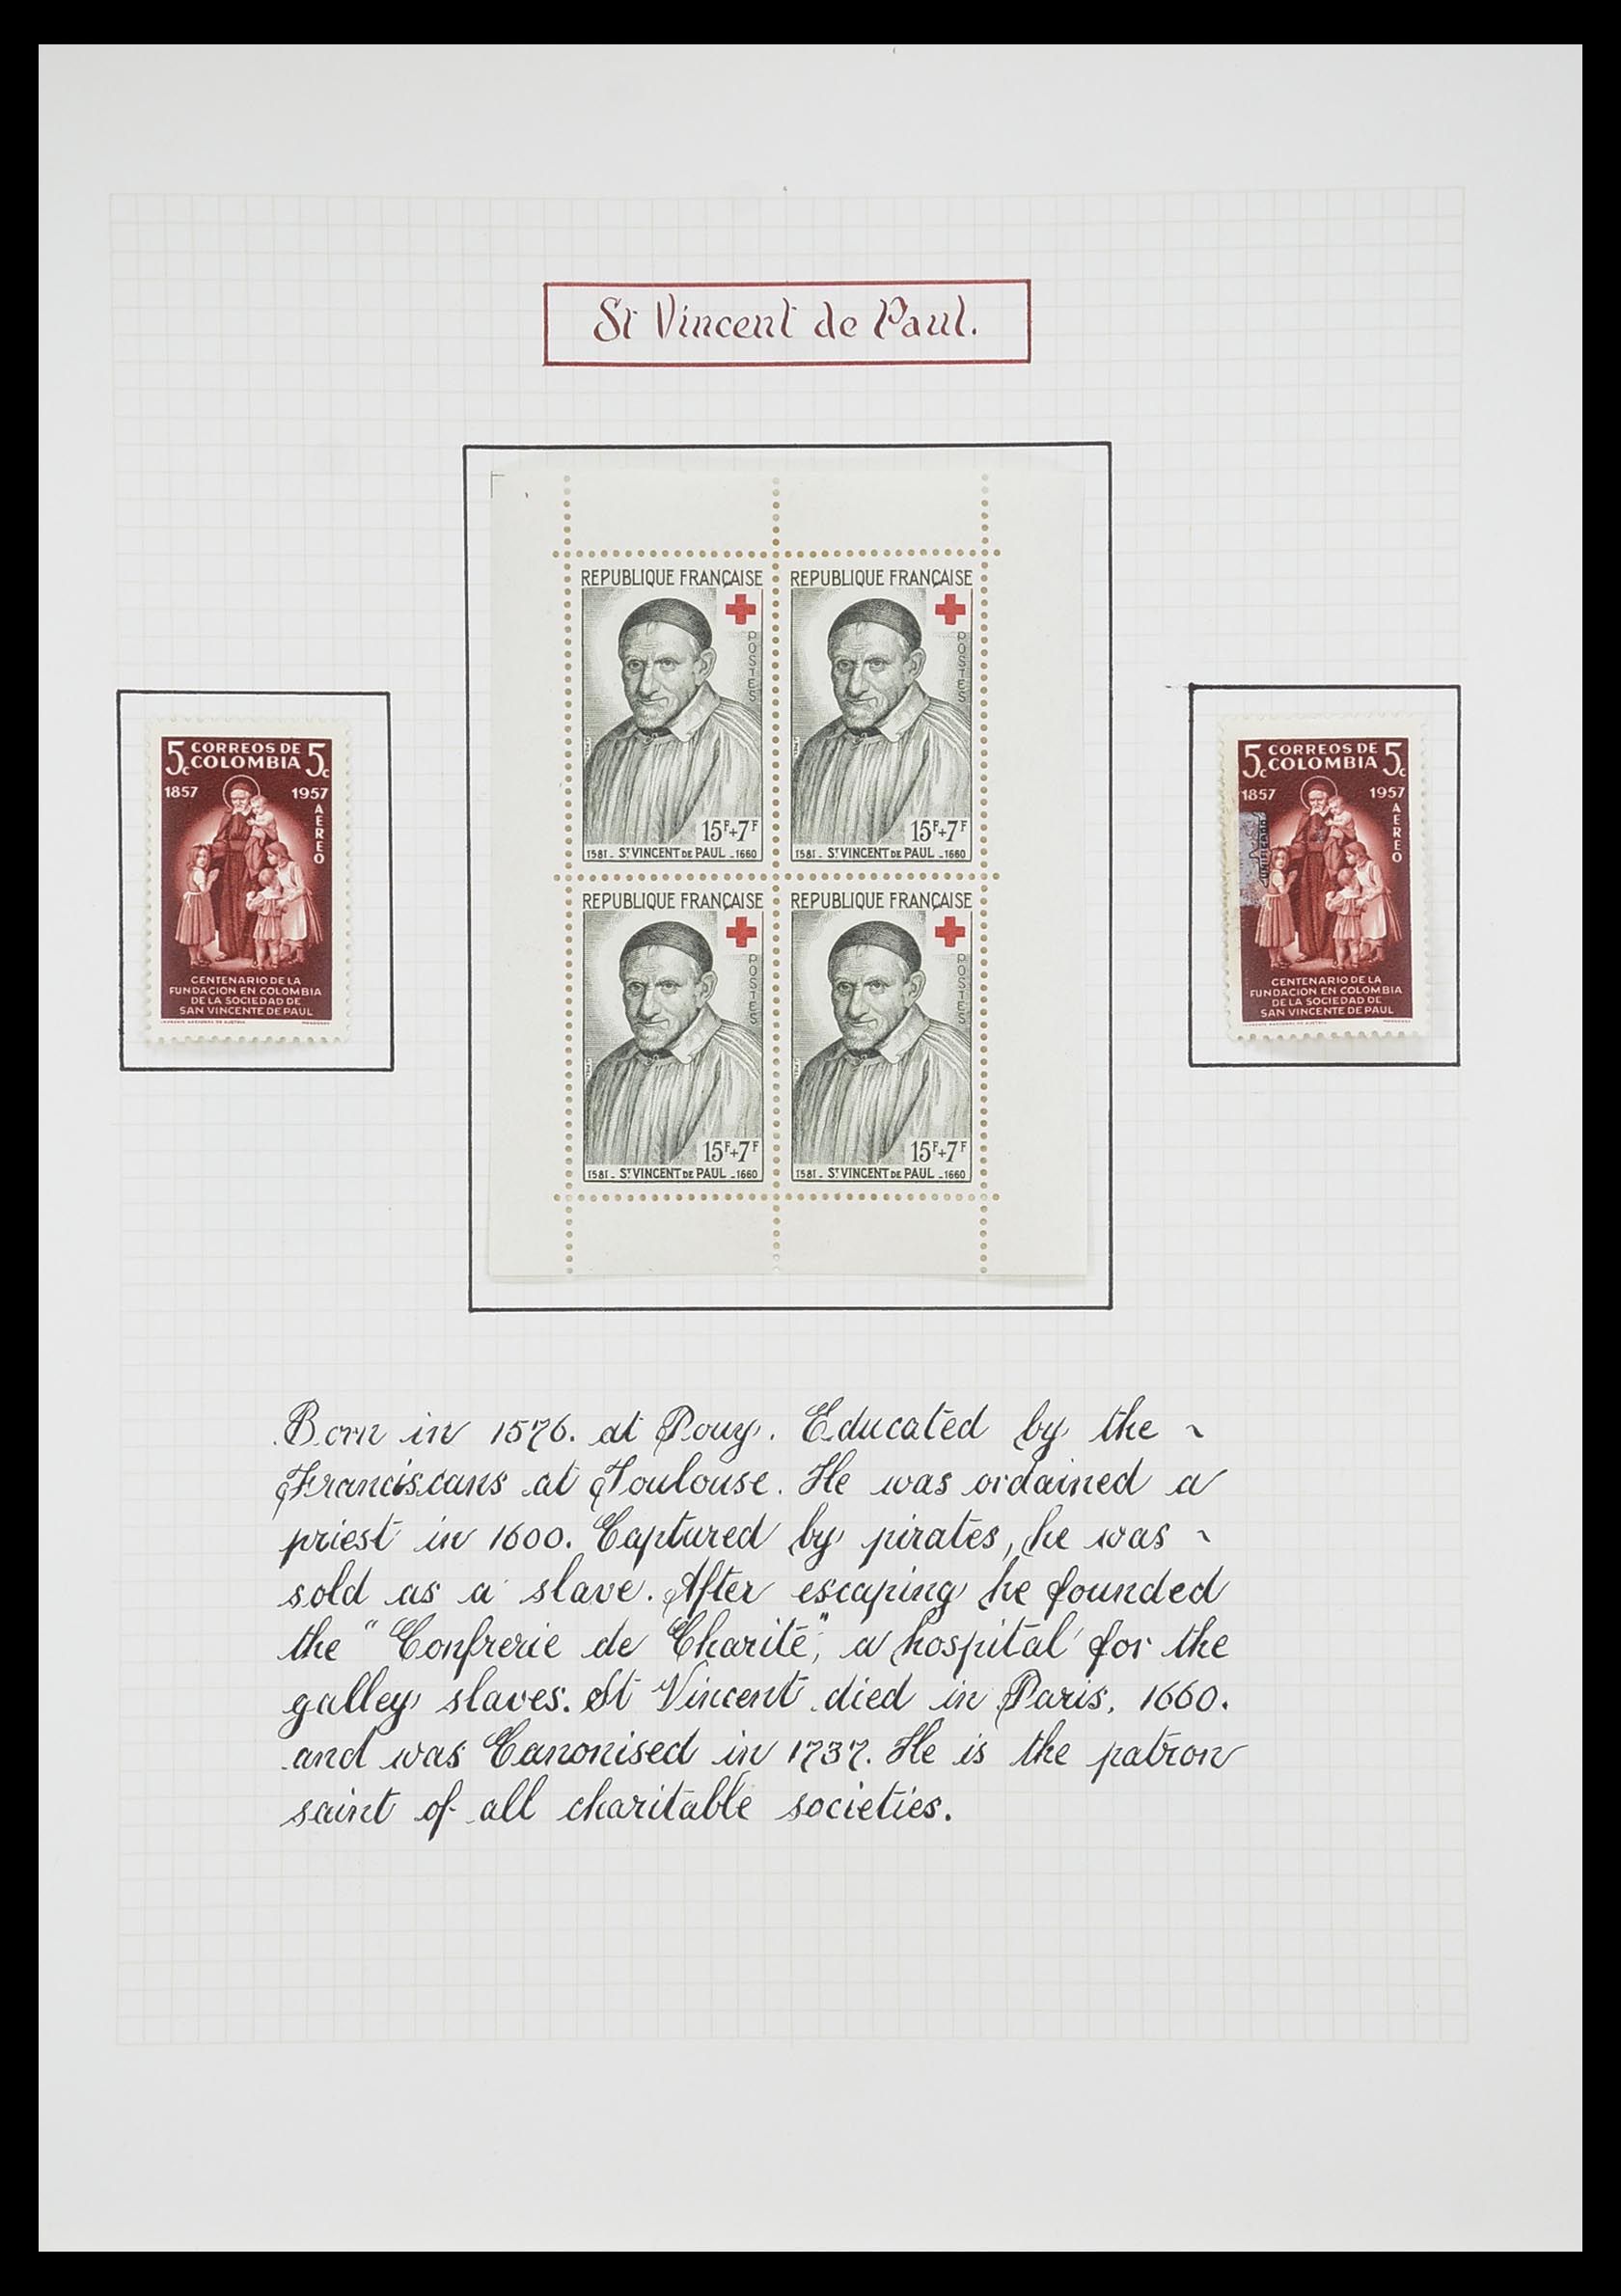 St Vincent de Paul.
REPUBLIQUE FRANÇAISE
POSTES
15F+7F
1581 - ST VINCENT DE PAUL - 1660
REPUBLIQUE FRANÇAISE
POSTES
15F+7F
1581 - ST VINCENT DE PAUL - 1660
REPUBLIQUE FRANÇAISE
POSTES
15F+7F
1581 - ST VINCENT DE PAUL - 1660
REPUBLIQUE FRANÇAISE
POSTES
15F+7F
1581 - ST VINCENT DE PAUL - 1660
5c CORREOS DE COLOMBIA 5c
1857 1957
AEREO
CENTENARIO DE LA
FUNDACION EN COLOMBIA
DE LA SOCIEDAD DE
SAN VINCENTE DE PAUL
5c CORREOS DE COLOMBIA 5c
1857 1957
AEREO
CENTENARIO DE LA
FUNDACION EN COLOMBIA
DE LA SOCIEDAD DE
SAN VINCENTE DE PAUL
Born in 1576. at Pouy. Educated by the ~
Franciscans at Toulouse. He was ordained a
priest in 1600. Captured by pirates, he was ~
sold as a slave. After escaping he founded
the "Confrerie de Charité", a hospital for the
galley slaves. St Vincent died in Paris, 1660.
and was Canonised in 1737. He is the patron
saint of all charitable societies.